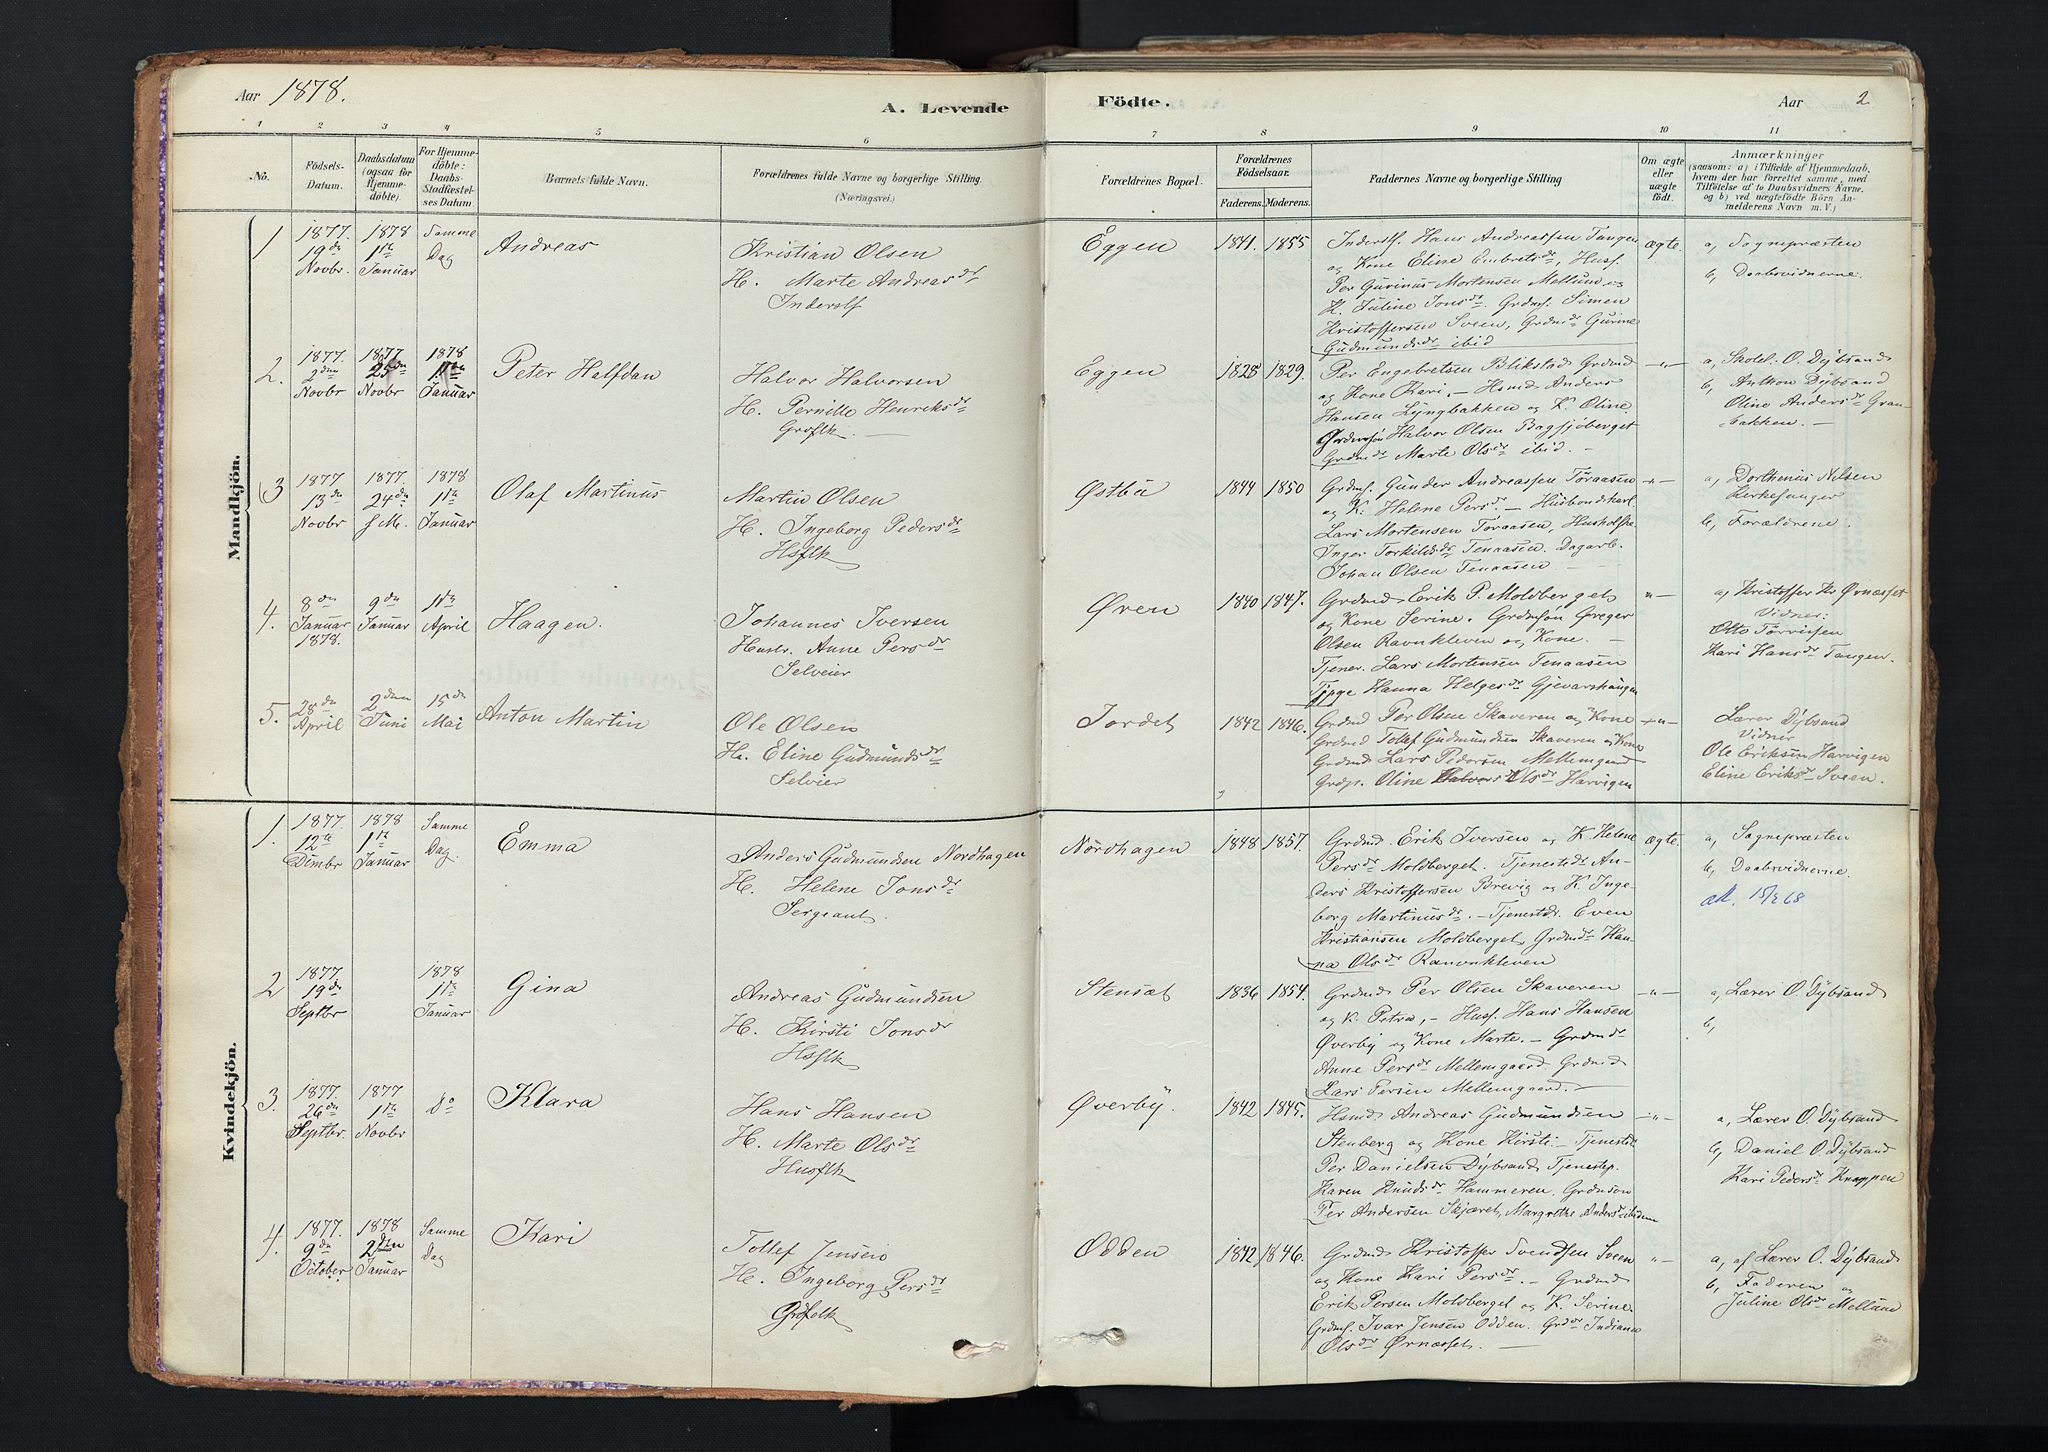 Aar 1878.
A. Levende Födte.
Aar 2
1 2 3 4 5 6 7 8 9 10 11
No.
Födsels-Datum.
Daabsdatum (ogsaa for Hjemmedöbte).
For Hjemmedöbte: Daabs-Stadfæstelses Datum.
Barnets fulde Navn.
Forældrenes fulde Navne og borgerlige Stilling. (Næringsvei.)
Forældrenes Bopæl.
Forældrenes Födselsaar.
Faderens. Moderens.
Faddernes Navne og borgerlige Stilling
Om ægte eller uægte födt.
Anmærkninger
(saasom: a) i Tilfælde af Hjemmedaab, hvem der har forrettet samme, med Tilföielse af to Daabsvidners Navne, og b) ved uægtefödte Börn Anmelderens Navn m. V.)
Mandkjön.
1 1877 19de Novbr. 1878 1ste Januar Samme Dag
Andreas
Kristian Olsen
H. Marte Andreasdr
Inderstf
Eggen
1841. 1855
Inderstf. Hans Andreassen Tangen
og Kone Eline Embretsdr, Husf.
Per Gurinus Mortensen Mellum og
K. Juline Jonsdr. Grdmf. Simen
Kristoffersen Sveen, Grdmdr Gurine
Gudmundsdr ibid
ægte.
a, Sognepræsten
b, Daabsvidnerne.
2. 1877. 2den Novbr 1877 25de Novbr 1878 1ste Januar
Peter Halfdan
Halvor Halvorsen
H. Pernille Henriksdr
Grdflk.
Eggen
1825 1829.
Per Engebretsen Blikstad Grdmd
og Kone Kari. - Hsmd. Anders
Hansen Lyngbakken og K. Oline.
Grdmsøn Halvor Olsen Bagsjøberget
Grdmdr Marte Olsdr ibid. -
-"-
a, Skolel. O. Dybsand
b, Anthon Dybsand
Oline Andersdr Gran-
bakken. -
3 1877 13de Novbr 1877. 24de s. M. 1878 1ste Januar
Olaf Martinus
Martin Olsen
H. Ingeborg Pedersdr
Hsflk
Østbü
1844 1850
Grdmf. Gunder Andreassen Töraasen
og K. Helene Persdr - Husbondskarl
Lars Mortensen Toraasen,
Inger Torkildsdr Tenaasen. Dagarb.
Johan Olsen Tenaasen. -
-"-
a, Dorthenus Nilsen
Kirkesanger
b, Forældrene.
4. 8de Januar 1878. 9de Januar 11te April
Haagen.
Johannes Iversen
Hustr. Anne Persdr
Selveier
Øren
1840 1847.
Grdmd Erik P. Moldberget
og Kone Serine. Grdmsøn Greger
Olsen Ravnkleven og Kone. -
Tjener. Lars Mortensen Tenaasen
Tjpge Hanna Helgesdr Gjevarshaugen
"-
a, Kristoffer Kr Ørnæsset
Vidner:
Otto Törrissen
Kari Hansdr Tangen.
5. 28de April 2den Juni 15de Mai
Anton Martin
Ole Olsen
H. Eline Gudmundsdr
Selvier
Jordet
1842 1846.
Grdmd Per Olsen Skaveren og Kone
Grdmd Tollef Gudmundsen Skaveren og Kone
Grdmd Lars Pedersen Mellemgaard
Grdp. Oline Halvors Olsdr Harvigen
-"-
Lærer Dybsand
Vidner
Ole Eriksen Harvigen
Eline Eriksdr Sveen.
Kvindekjön.
1. 1877. 12te Dcmbr 1878 1ste Januar Samme Dag.
Emma
Anders Gudmundsen Nordhagen
H. Helene Jonsdr
Sergeant.
Nordhagen
1848 1857.
Grdmd Erik Iversen og K. Helene
Persdr Moldberget. Tjenestdr. An-
ders Kristoffersen Brevig og K. Inge-
borg Martinusdr. - Tjenestdr. Even
Kristiansen Moldberget, Grdmdr Han-
na Olsdr Ravnkleven
ægte.
a, Sognepræsten
b, Daabsvidnerne.
2 1877. 19de Septbr 1878 1ste Januar
Gina
Andreas Gudmundsen
H. Kirsti Jonsdr
Hsflk
Stensæt
1836 1854.
Grdmd Per Olsen Skaveren
og K. Petra, - Husf. Hans Hansen
Øverby og Kone Marte. - Grdmdr
Anne Persdr Mellemgaard Grdmd
Lars Persen Mellemgaard. -
-"-
a, Lærer O. Dybsand
b,
3. 1877. 26de Septbr. 1877 1ste Novbr Do
Klara
Hans Hansen
H. Marte Olsdr
Husflk
Øverby.
1842 1845.
Hsmd Andreas Gudmundsen
Stenberg og Kone Kirsti - Tjenestdr.
Per Danielsen Dybsand Tjenestep.
Karen Knudsdr Hammeren. Grdmsøn
Per Andersen Skjæret, Margrethe Andersdr ibidem
-"-
a, Lærer O. Dybsand
b, Daniel O. Dybsand
Kari Pedersdr Knappen
4. 1877. 9de October 1878 2den Januar Samme Dag
Kari
Tollef Jensen
H. Ingeborg Persdr
Grdfolk
Odden
1842 1846.
Grdmd Kristoffer Svendsen Sveen
og Kone Kari Persdr. - Grdmd
Erik Persen Moldberget og K. Serine
Grdmf. Ivar Jensen Odden. Grdr Indiana
Olsdr Ørnæsset. -
"-
a, af Lærer O. Dybsand
b, Faderen og
Juline Olsdr Mellum